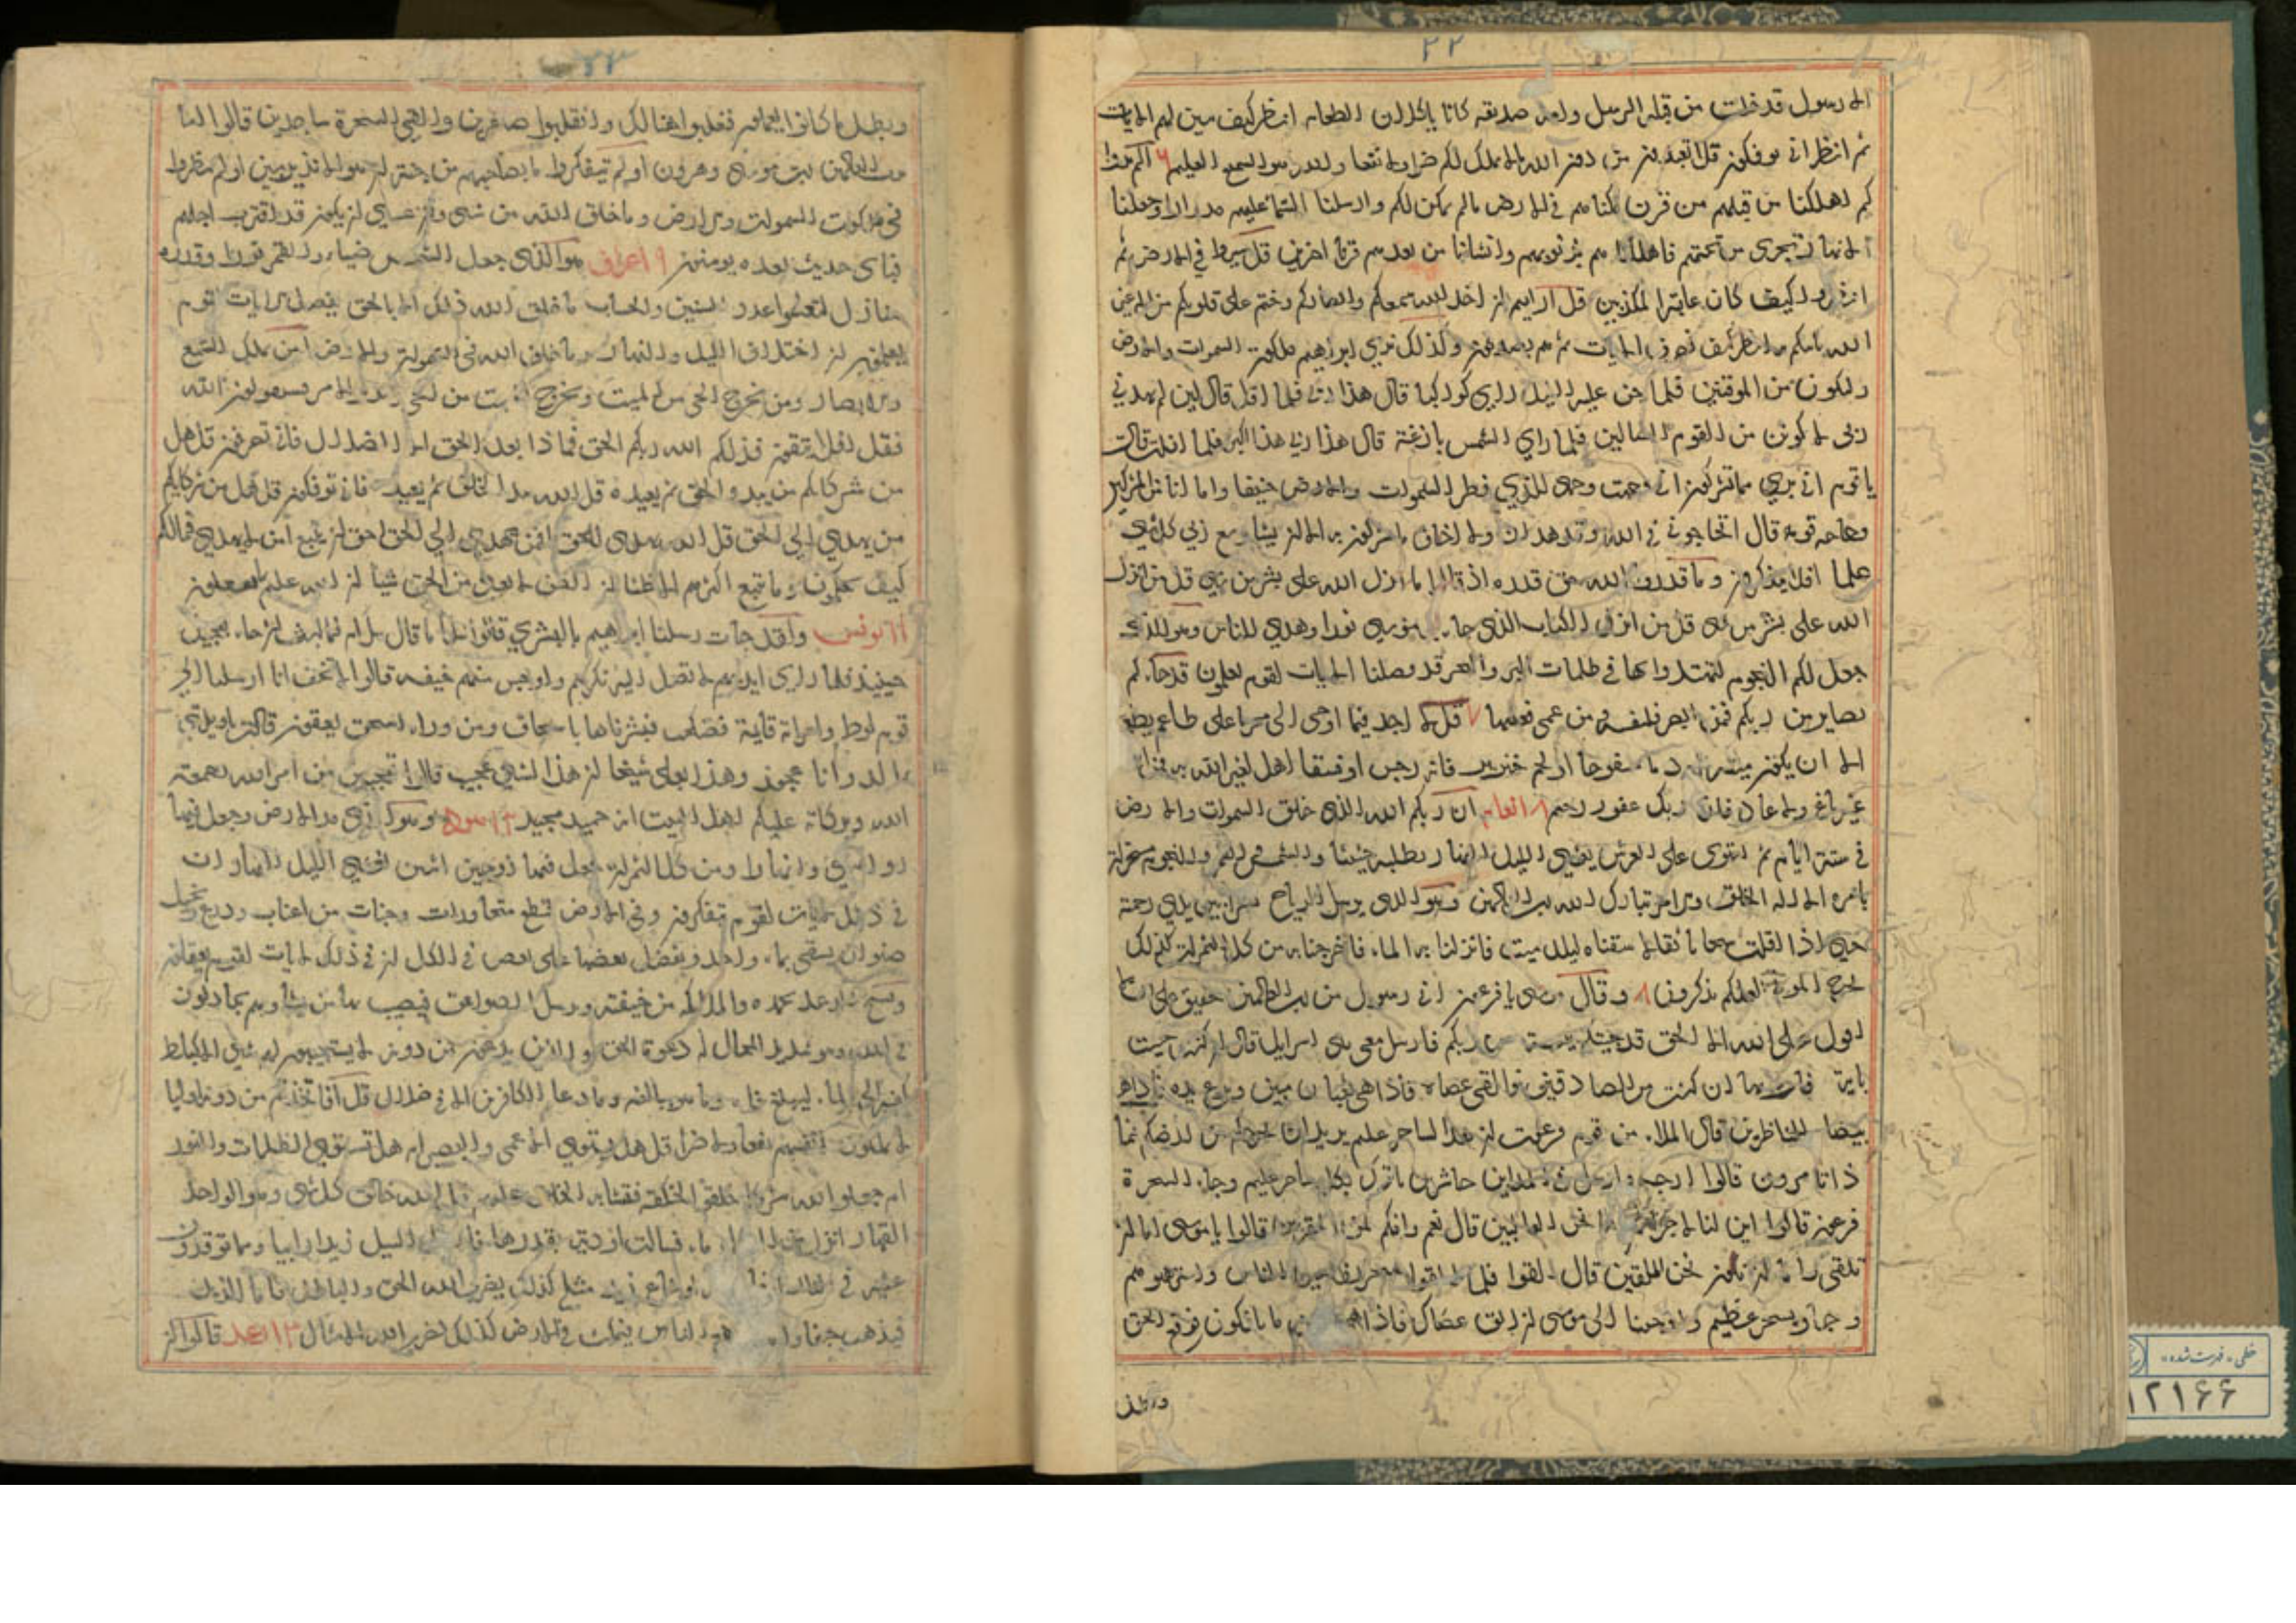 ٢٢
الا رسول قد خلت من قبله الرسل وامه صديقه كانا ياكلان الطعام انظر كيف نبين لهم الايات
ثم انظر اني يوفكون قل اتعبدون من دون الله ما لا يملك لكم ضرا ولا نفعا والله هو السميع العليم ٦ الم يروا
كم اهلكنا من قبلهم من قرن مكناهم في الارض مالم نمكن لكم وارسلنا السما عليهم مدرارا وجعلنا
الانهار تجري من تحتهم فاهلكناهم بذنوبهم وانشانا من بعدهم قرنا اخرين قل سيروا في الارض ثم
انظروا كيف كان عاقبة المكذبين قل ارايتم ان اخذ الله سمعكم وابصاركم وختم على قلوبكم من اله غير
الله ياتيكم به انظر كيف نصرف الايات ثم هم يصدفون وكذلك نري ابرهيم ملكوت السموات والارض
وليكون من الموقنين فلما جن عليه الليل راي كوكبا قال هذا ربي فلما افل قال لين لم يهدني
ربي لاكونن من القوم الضالين فلما راي الشمس بازغة قال هذا ربي هذا اكبر فلما افلت قال
ياقوم اني بري مما تشركون اني وجهت وجهي للذي فطر السموات والارض حنيفا وما انا من المشركين
وحاجه قومه قال اتحاجوني في الله وقد هدان ولا اخاف ما تشركون به الا ان يشا ربي شيا وسع ربي كل شي
علما افلا تتذكرون وما قدروا الله حق قدره اذ قالوا ما انزل الله على بشر من شي قل من انزل
الله على بشر من شي قل من انزل الكتاب الذي جا به موسي نورا وهدي للناس وهو الذي
جعل لكم النجوم لتهتدوا بها في ظلمات البر والبحر قد فصلنا الايات لقوم يعلمون قد جاكم
بصاير من ربكم فمن ابصر فلنفسه ومن عمي فعليها قل لا اجد فيما اوحي الي محرما على طاعم يطعمه
الا ان يكون ميتة او دما مسفوحا او لحم خنزير فانه رجس او فسقا اهل لغير الله به فمن اضطر
غير باغ ولا عاد فان ربك غفور رحيم انعام ان ربكم الله الذي خلق السموات والارض
في ستة ايام ثم استوى على العرش يغشي الليل النهار يطلبه حثيثا والشمس والقمر والنجوم مسخرات
بامره الا له الخلق والامر تبارك الله رب العالمين وهو الذي يرسل الرياح بشرا بين يدي رحمته
حتي اذا اقلت سحابا ثقالا سقناه لبلد ميت فانزلنا به الماء فاخرجنا به من كل الثمرات كذلك
نخرج الموتي لعلكم تذكرون ٨ وقال موسي يا فرعون اني رسول من رب العالمين حقيق على ان لا
اقول على الله الا الحق قد جئتكم ببينة من ربكم فارسل معي بني اسرايل قال ان كنت جيت
باية فات بها ان كنت من الصادقين فالقى عصاه فاذا هي ثعبان مبين ونزع يده فاذا هي
بيضا للناظرين قال الملاء من قوم فرعون ان هذا لساحر عليم يريد ان يخرجكم من ارضكم فما
ذا تامرون قالوا ارجه وارسل في المداين حاشرين ياتوك بكل ساحر عليم وجاء السحرة
فرعون قالوا اين لنا لاجرا ان كنا نحن الغالبين قال نعم وانكم لمن المقربين قالوا يا موسى اما ان
تلقي واما ان نكون نحن الملقين قال القوا فلما القوا سحروا اعين الناس واسترهبوهم
وجاو بسحر عظيم واوحينا الى موسى ان الق عصاك فاذا هي ما يافكون فوقع الحق
وبطل
٢٣
وبطل ما كانوا يعملون فغلبوا هنالك وانقلبوا صاغرين والقي السحرة ساجدين قالوا امنا
برب العالمين رب موسي وهرون اولم يتفكروا ما بصاحبهم من جنة ان هو الا نذير مبين اولم ينظروا
في ملكوت السموات والارض وما خلق الله من شي وان عسي ان يكون قد اقترب اجلهم
فباي حديث بعده يومنون ٩ اعراف هو الذي جعل الشمس ضياء والقمر نورا وقدره
منازل لتعلموا عدد السنين والحساب ما خلق الله ذلك الا بالحق يفصل الايات لقوم
يعلمون ان اختلاف الليل والنهار وما خلق الله في السموات والارض امن يملك السمع
والابصار ومن يخرج الحي من الميت ويخرج الميت من الحي ومن يدبر الامر فسيقولون الله
فقل افلا تتقون فذلكم الله ربكم الحق فماذا بعد الحق الا الضلال فاني تصرفون قل هل
من شركايكم من يبدو الخلق ثم يعيده قل الله يبدا الخلق ثم يعيده فاني توفكون قل هل من شركايكم
من يهدي الي الحق قل الله يهدي للحق افمن يهدي الي الحق احق ان يتبع امن لا يهدي فمالكم
كيف تحكمون وما يتبع اكثرهم الا ظنا ان الظن لا يغني من الحق شيا ان الله عليم بما يفعلون
١١ يونس ولقد جات رسلنا ابراهيم بالبشري قالوا سلاما قال سلام فما لبث ان جاء بعجل
حنيذ فلما راي ايديهم لا تصل اليه نكرهم واوجس منهم خيفه قالوا لا تخف انا ارسلنا الي
قوم لوط وامراته قايمة فضحكت فبشرناها باسحاق ومن وراء اسحق يعقوب قالت ياويلتي
ءالد وانا عجوز وهذا بعلي شيخا ان هذا لشي عجيب قالوا اتعجبين من امر الله رحمة
الله وبركاته عليكم اهل البيت انه حميد مجيد ١٢ هود وهو الذي مد الارض وجعل فيها
رواسي وانهارا ومن كل الثمرات جعل فيها زوجين اثنين يغشي الليل النهار ان
في ذلك لايات لقوم يتفكرون وفي الارض قطع متجاورات وجنات من اعناب وزرع ونخيل
صنوان يسقي بماء واحد ونفضل بعضها على بعض في الاكل ان في ذلك لايات لقوم يعقلون
ويسبح الرعد بحمده والملائكة من خيفته ويرسل الصواعق فيصيب بها من يشا وهم يجادلون
في الله وهو شديد المحال له دعوة الحق والذين يدعون من دونه لا يستجيبون لهم بشي الا كباسط
كفيه الي الماء ليبلغ فاه وما هو ببالغه وما دعا الكافرين الا في ضلال قل افاتخذتم من دونه اوليا
لا يملكون لانفسهم نفعا ولا ضرا قل هل يستوي الاعمى والبصير ام هل تستوي الظلمات والنور
ام جعلوا لله شركاء خلقوا كخلقه فتشابه الخلق عليهم قل الله خالق كل شي وهو الواحد
القهار انزل من السماء ماء فسالت اودية بقدرها فاحتمل السيل زبدا رابيا ومما توقدون
عليه في النار ابتغاء او متاع زبد مثله كذلك يضرب الله الحق والباطل فاما الزبد
فيذهب جفاء واما الناس فيمكث في الارض كذلك يضرب الله الامثال ١٣ رعد قالوا ان
خطی فهرست شده
١٢١٦٦